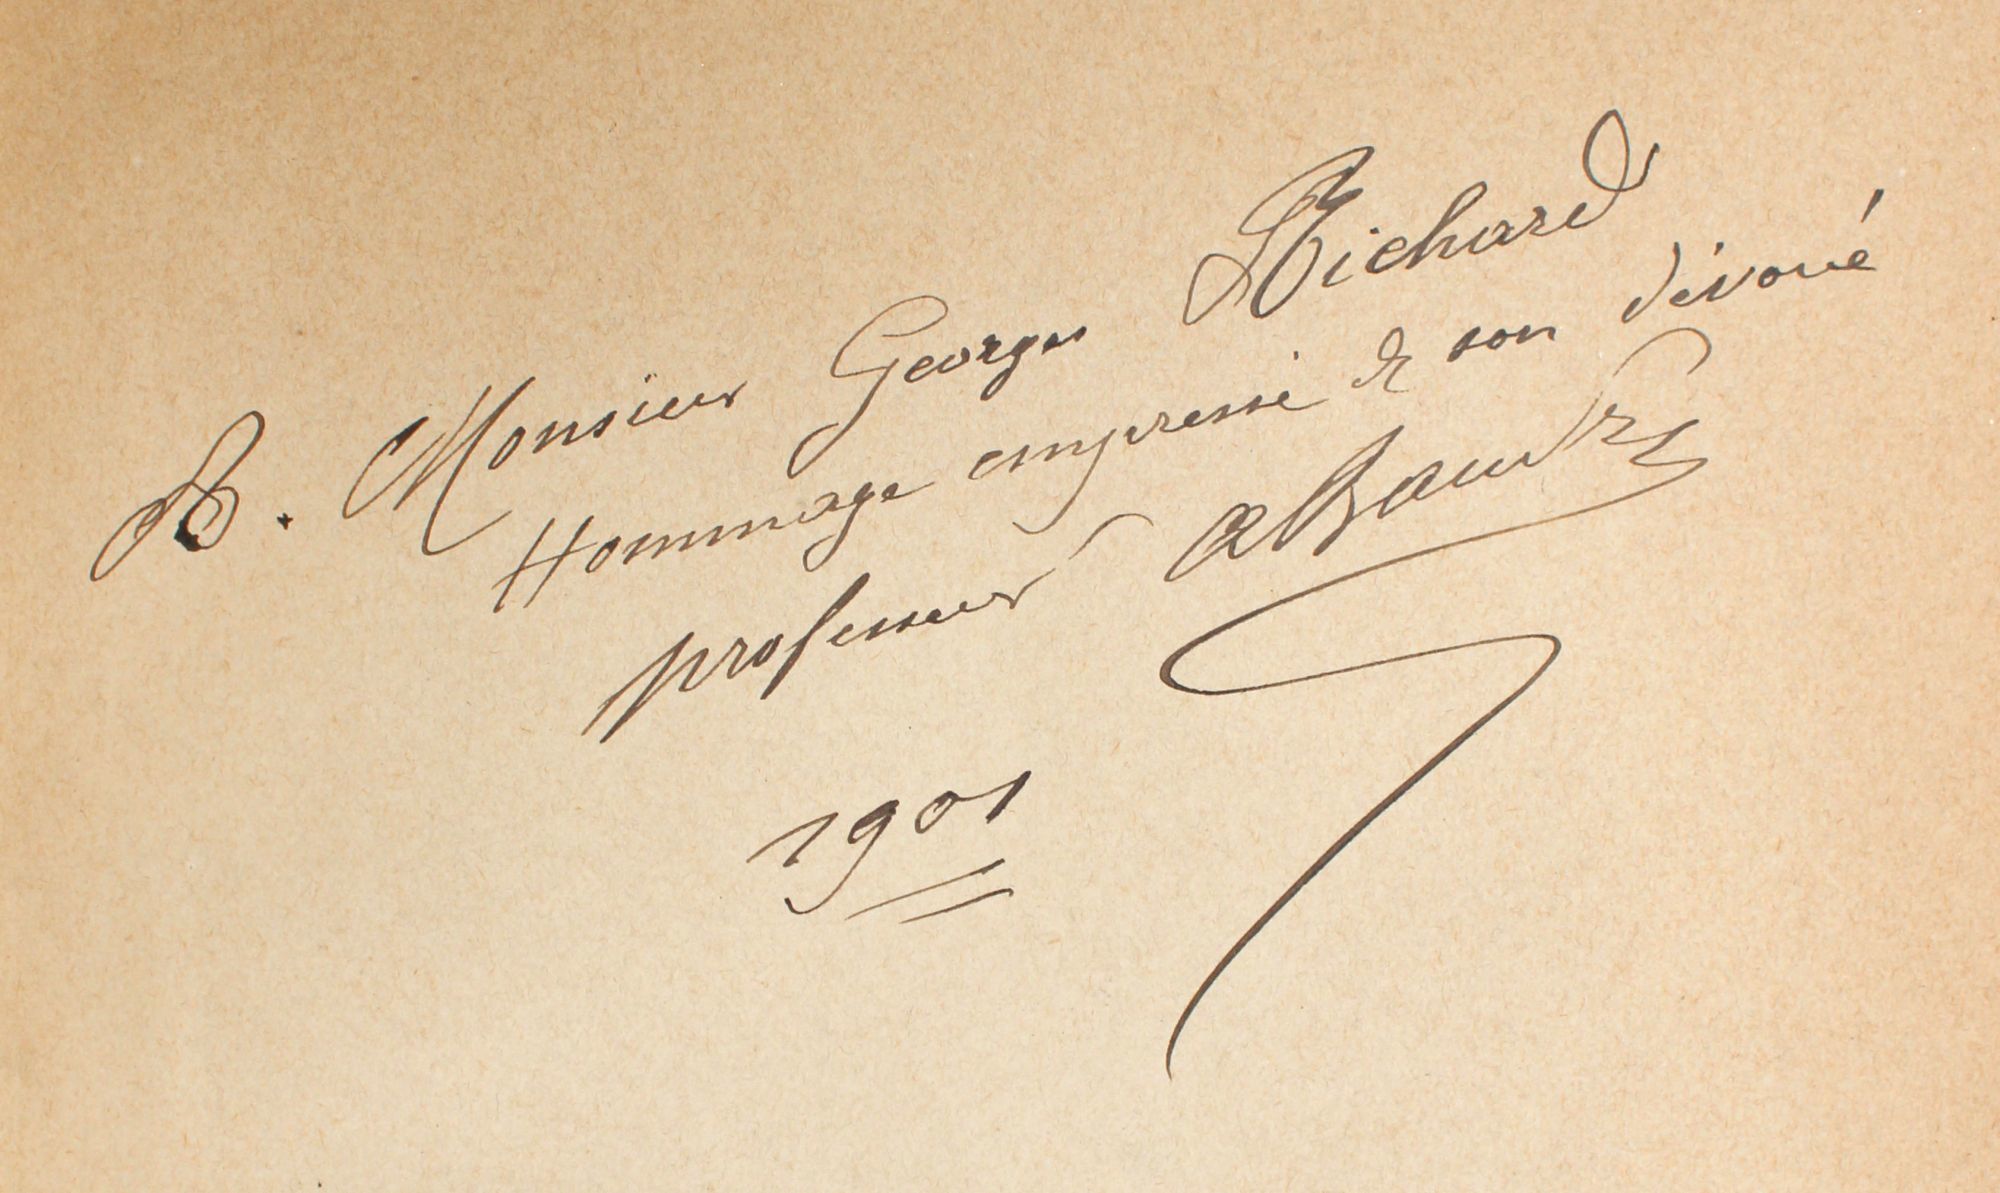 A. Monsieur Georges Richard
Hommage empressé de son dévoué
professeur ABaudry
1901